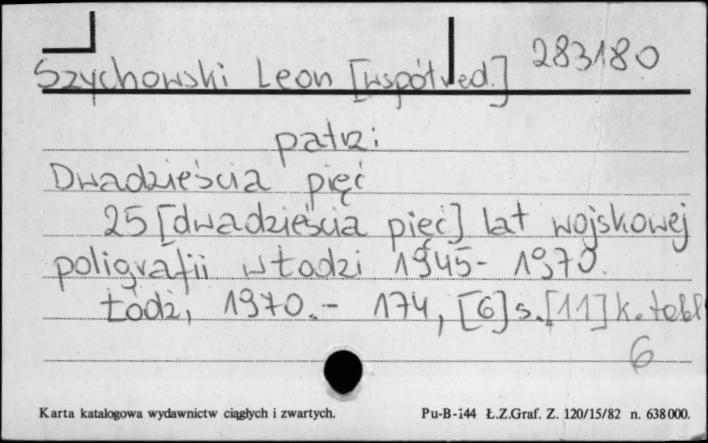 283180
Szychowski Leon [współred.]
patrz:
Dwadzieścia pięć
25 [dwadzieścia pięć] lat wojskowej
poligrafii w Łodzi 1945-1970.
Łódź, 1970.- 174, [6] s. [11] k. tabl
6
Karta katalogowa wydawnictw ciągłych i zwartych.
Pu-B-144 Ł.Z.Graf. Z. 120/15/82 n. 638000.